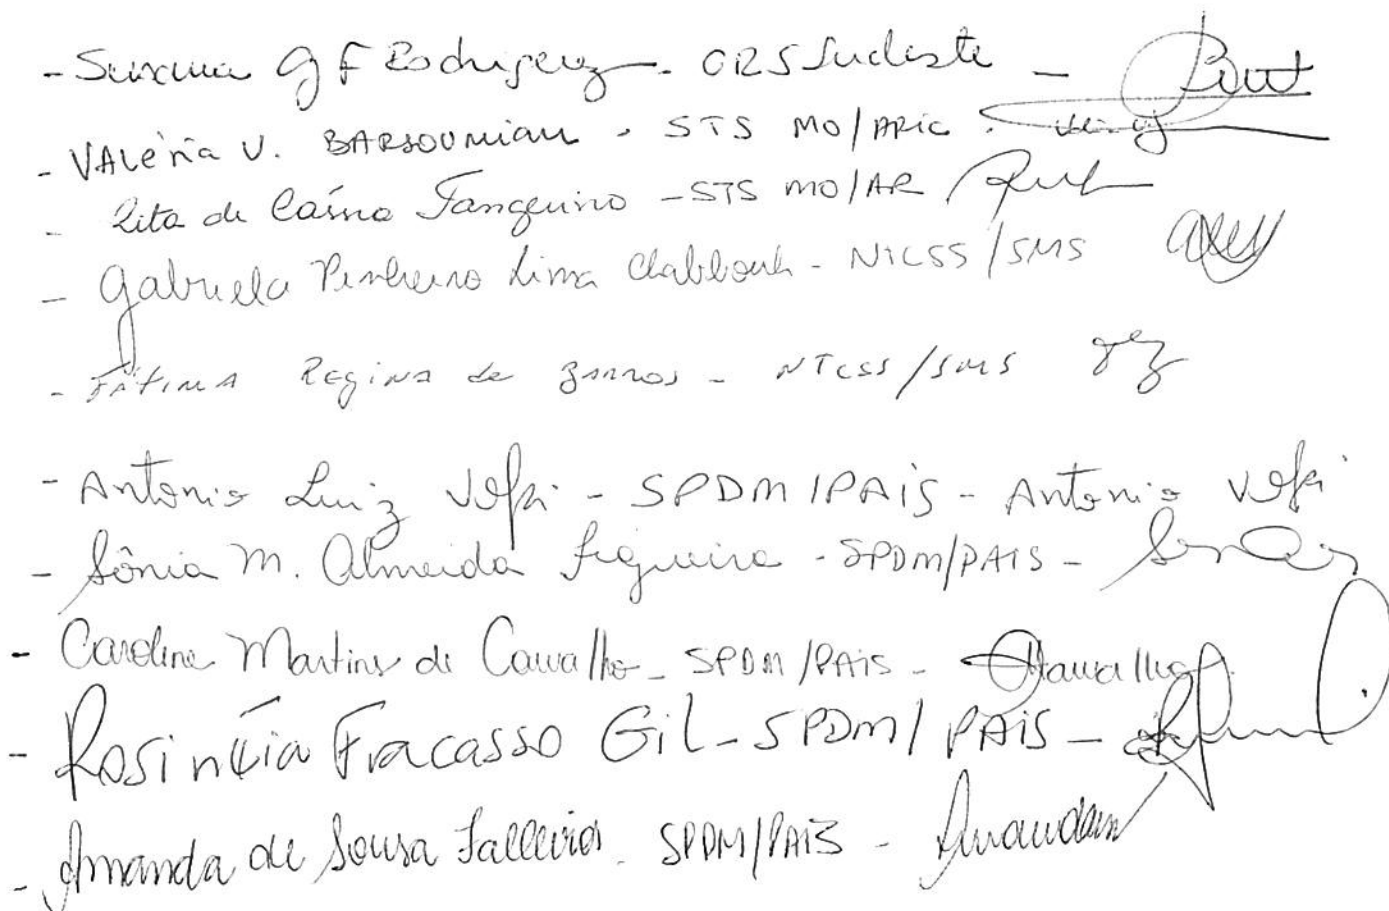 - G F Rodriguez - CRS Sudeste -
- VALéria V. BARSOUMIAN - STS MO/ARIC -
- Rita de Cássia Tanguino - STS MO/AR
- Gabriela Pinheiro Lima Chabbouh - NTCSS/SMS
- FÁTIMA Regina de Barros - NTCSS/SMS
- Antonio Luiz - SPDM/PAIS - Antonio
- Sônia M. Almeida Figueira - SPDM/PAIS -
- Caroline Martins de Carvalho - SPDM/PAIS - Carvalho
- Fracasso Gil - SPDM/PAIS -
- Amanda de Sousa - SPDM/PAIS - Amanda